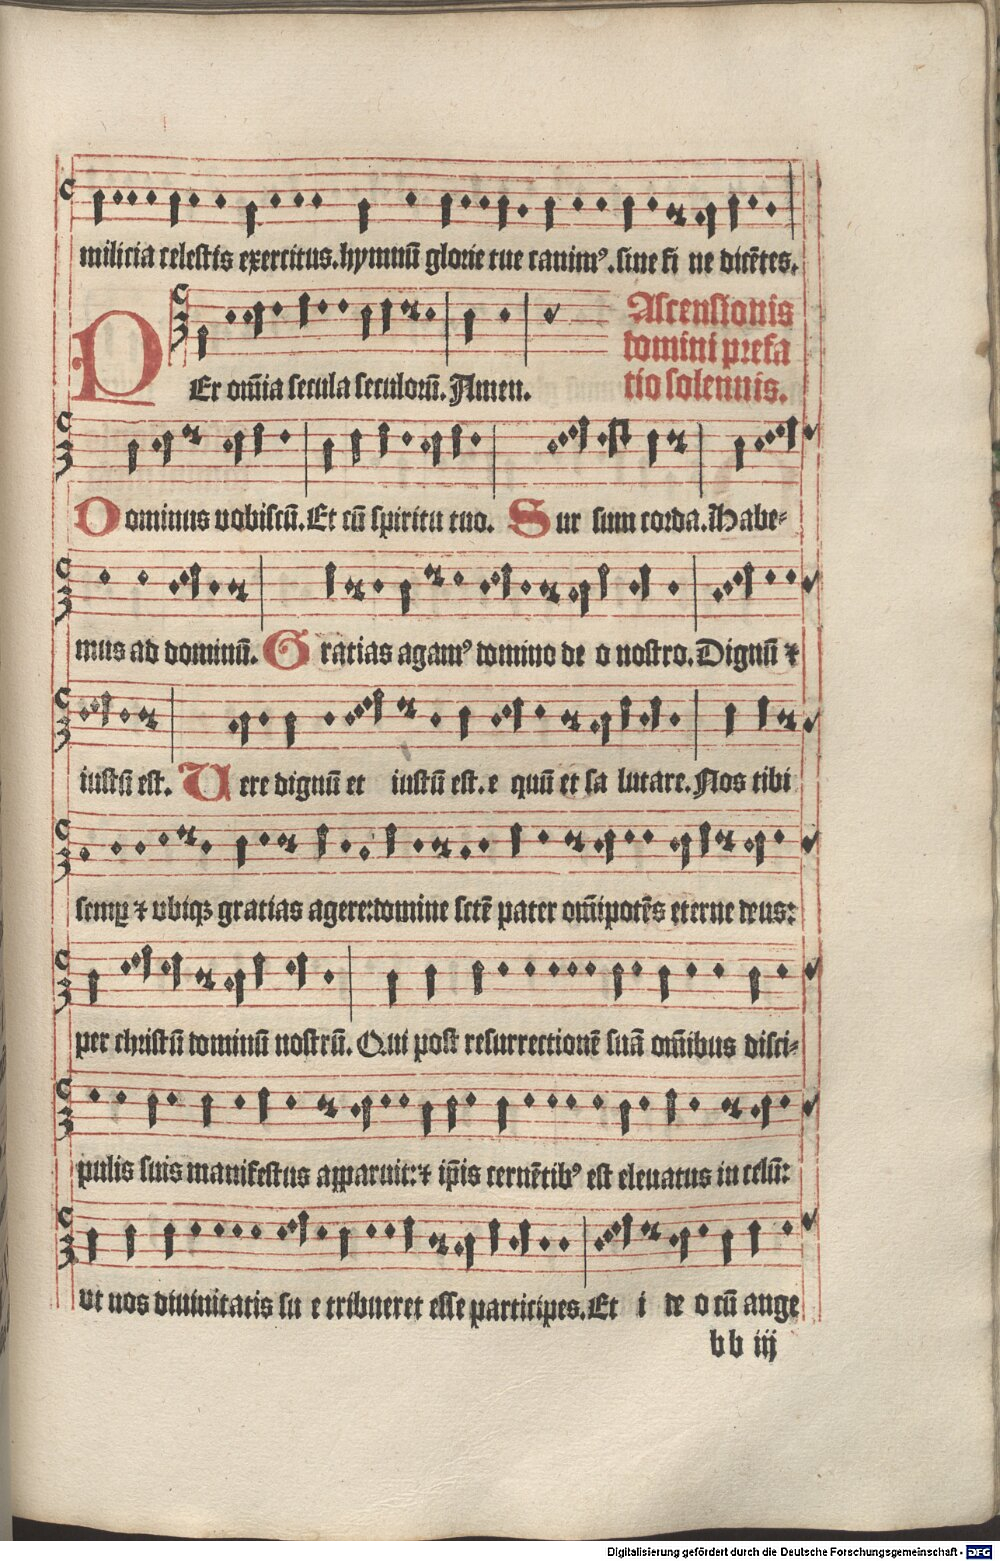 milicia celestis exercitus. hymnū glorie tue canimꝰ. sine fi ne dicētes.
Ascensionis
domini prefa
tio solennis.
PEr om̄ia secula seculoꝝ. Amen.
Dominus vobiscū. Et cū spiritu tuo. Sur sum corda. Habe-
mus ad dominū. Gratias agamꝰ domino de o nostro. Dignū ⁊
iustū est. Uere dignū et iustū est. e quū et sa lutare. Nos tibi
semꝑ ⁊ vbiqꝫ gratias agere: domine sctē pater om̄ipotēs eterne deus:
per christū dominū nostrū. Qui post resurrectionē suā om̄ibus disci-
pulis suis manifestus apparuit: ⁊ ip̄is cernētibꝰ est eleuatus in celū:
vt nos diuinitatis su e tribueret esse participes. Et i de o cū ange
bb iij
Digitalisierung gefördert durch die Deutsche Forschungsgemeinschaft - DFG